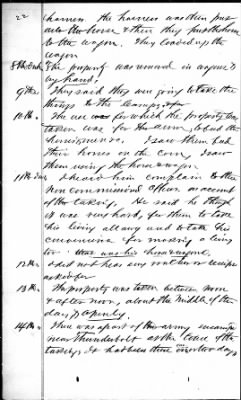 22
harness. The harness was then put
onto the horse & then they put the horse
to the wagon. They loaded up the
wagon
8th The property was removed in wagons &
by hand.
9th They said they were going to take the
things to the camp
10th The use for which the property was
taken was for the army, to feed the
horses &c. I saw them feed
their horses on the corn, I saw
them using the horse & wagon.
11th I heard him complain to the
Non commissioned officer on account
of the taking. He said he thought
it was very hard, for them to take
his living away and to take his
for making a living
too. that was his
12th I did not hear any
asked for
13th The property was taken between noon
& after noon, about the middle of the
day, & openly.
14th There was a part of the army encamped
near Thunderbolt at the time of the
taking, & had been there one or two days